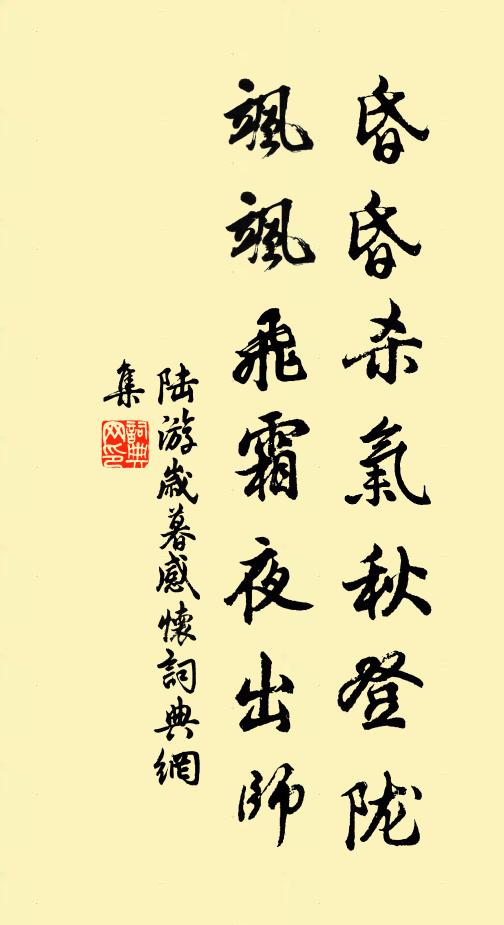 昏昏杀氣秋登陇
颯颯飛霜夜出師
陆游歲暮感懷詞典網
集
詞典
网印